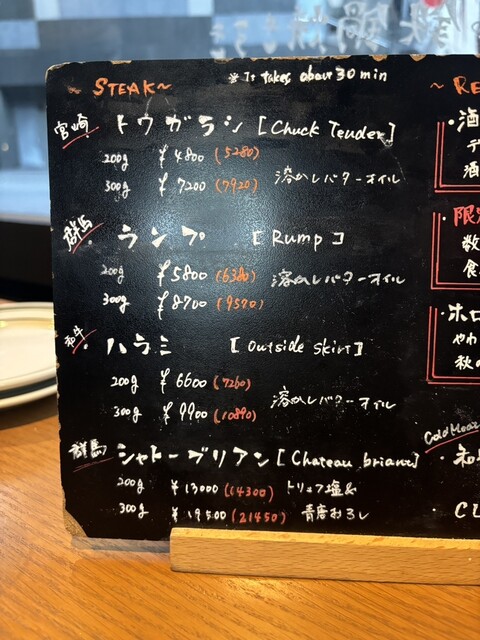 ~ STEAK ~
※ It takes about 30 min
宮崎 トウガラシ [Chuck Tender]
200g ¥4800 (5280)
300g ¥7200 (7920) 溶かしバターオイル
群馬 ランプ [Rump]
200g ¥5800 (6380) 溶かしバターオイル
300g ¥8700 (9570)
和牛 ハラミ [Outside skirt]
200g ¥6600 (7260)
300g ¥9900 (10890) 溶かしバターオイル
群馬 シャトーブリアン [Chateau briand]
200g ¥13000 (14300) トリュフ塩&
300g ¥19500 (21450) 青唐おろし
~ RE
・酒
デ
酒
・限定
数
食
・ホロ
やわ
秋の
・和
・CL